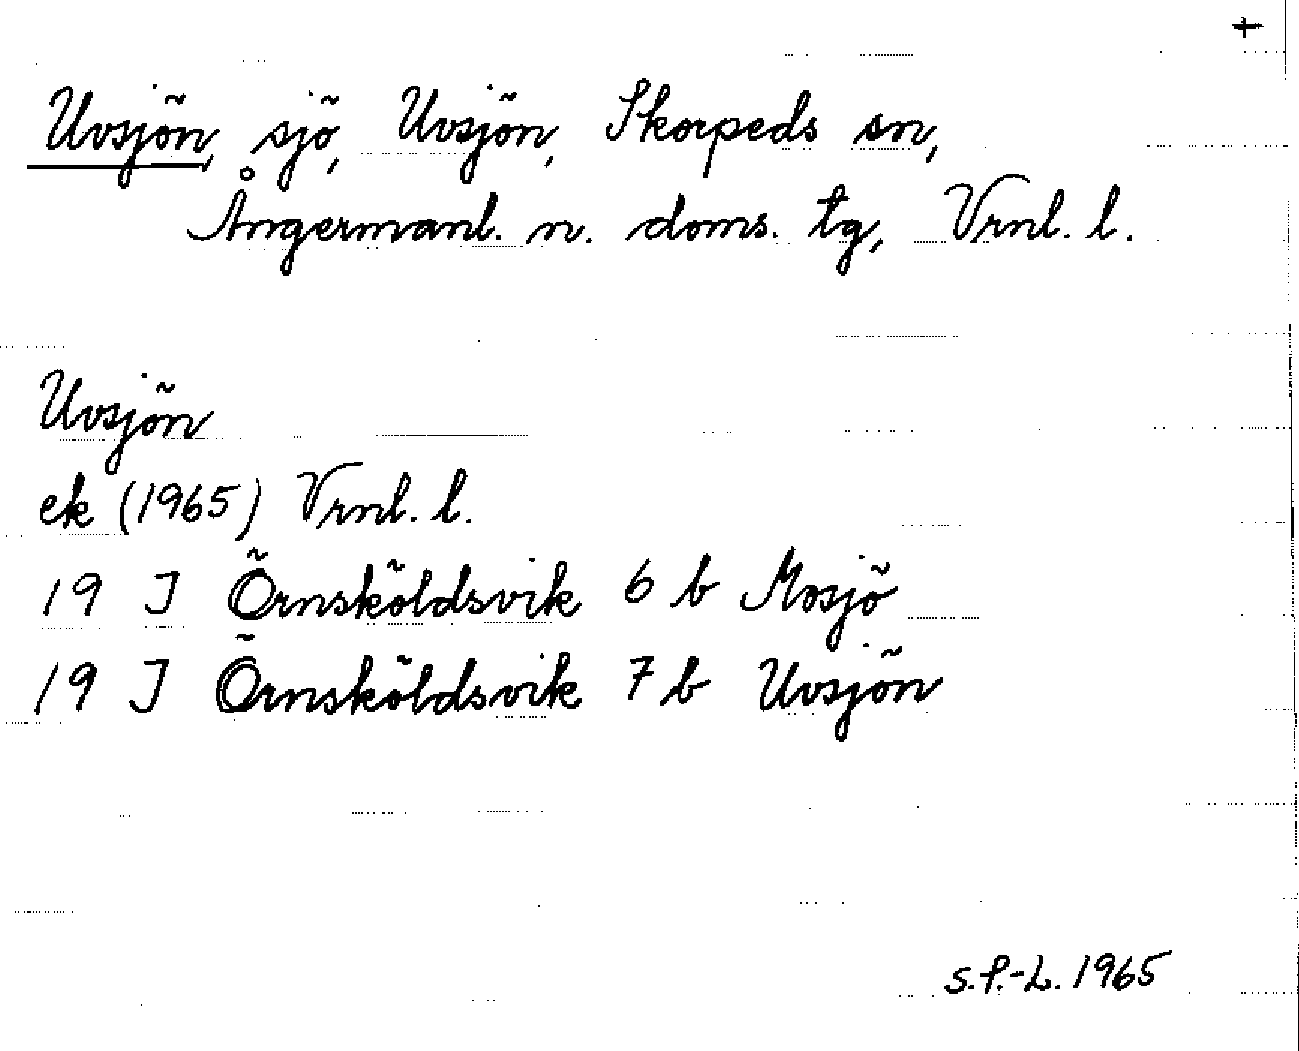 +
Uvsjön, sjö, Uvsjön, Skorpeds sn,
Ångermanl. n. doms. tg, Vrnl. l.
Uvsjön
ek (1965) Vrnl. l.
19 J Örnsköldsvik 6 b Mosjö
19 J Örnsköldsvik 7 b Uvsjön
S.P.-L. 1965